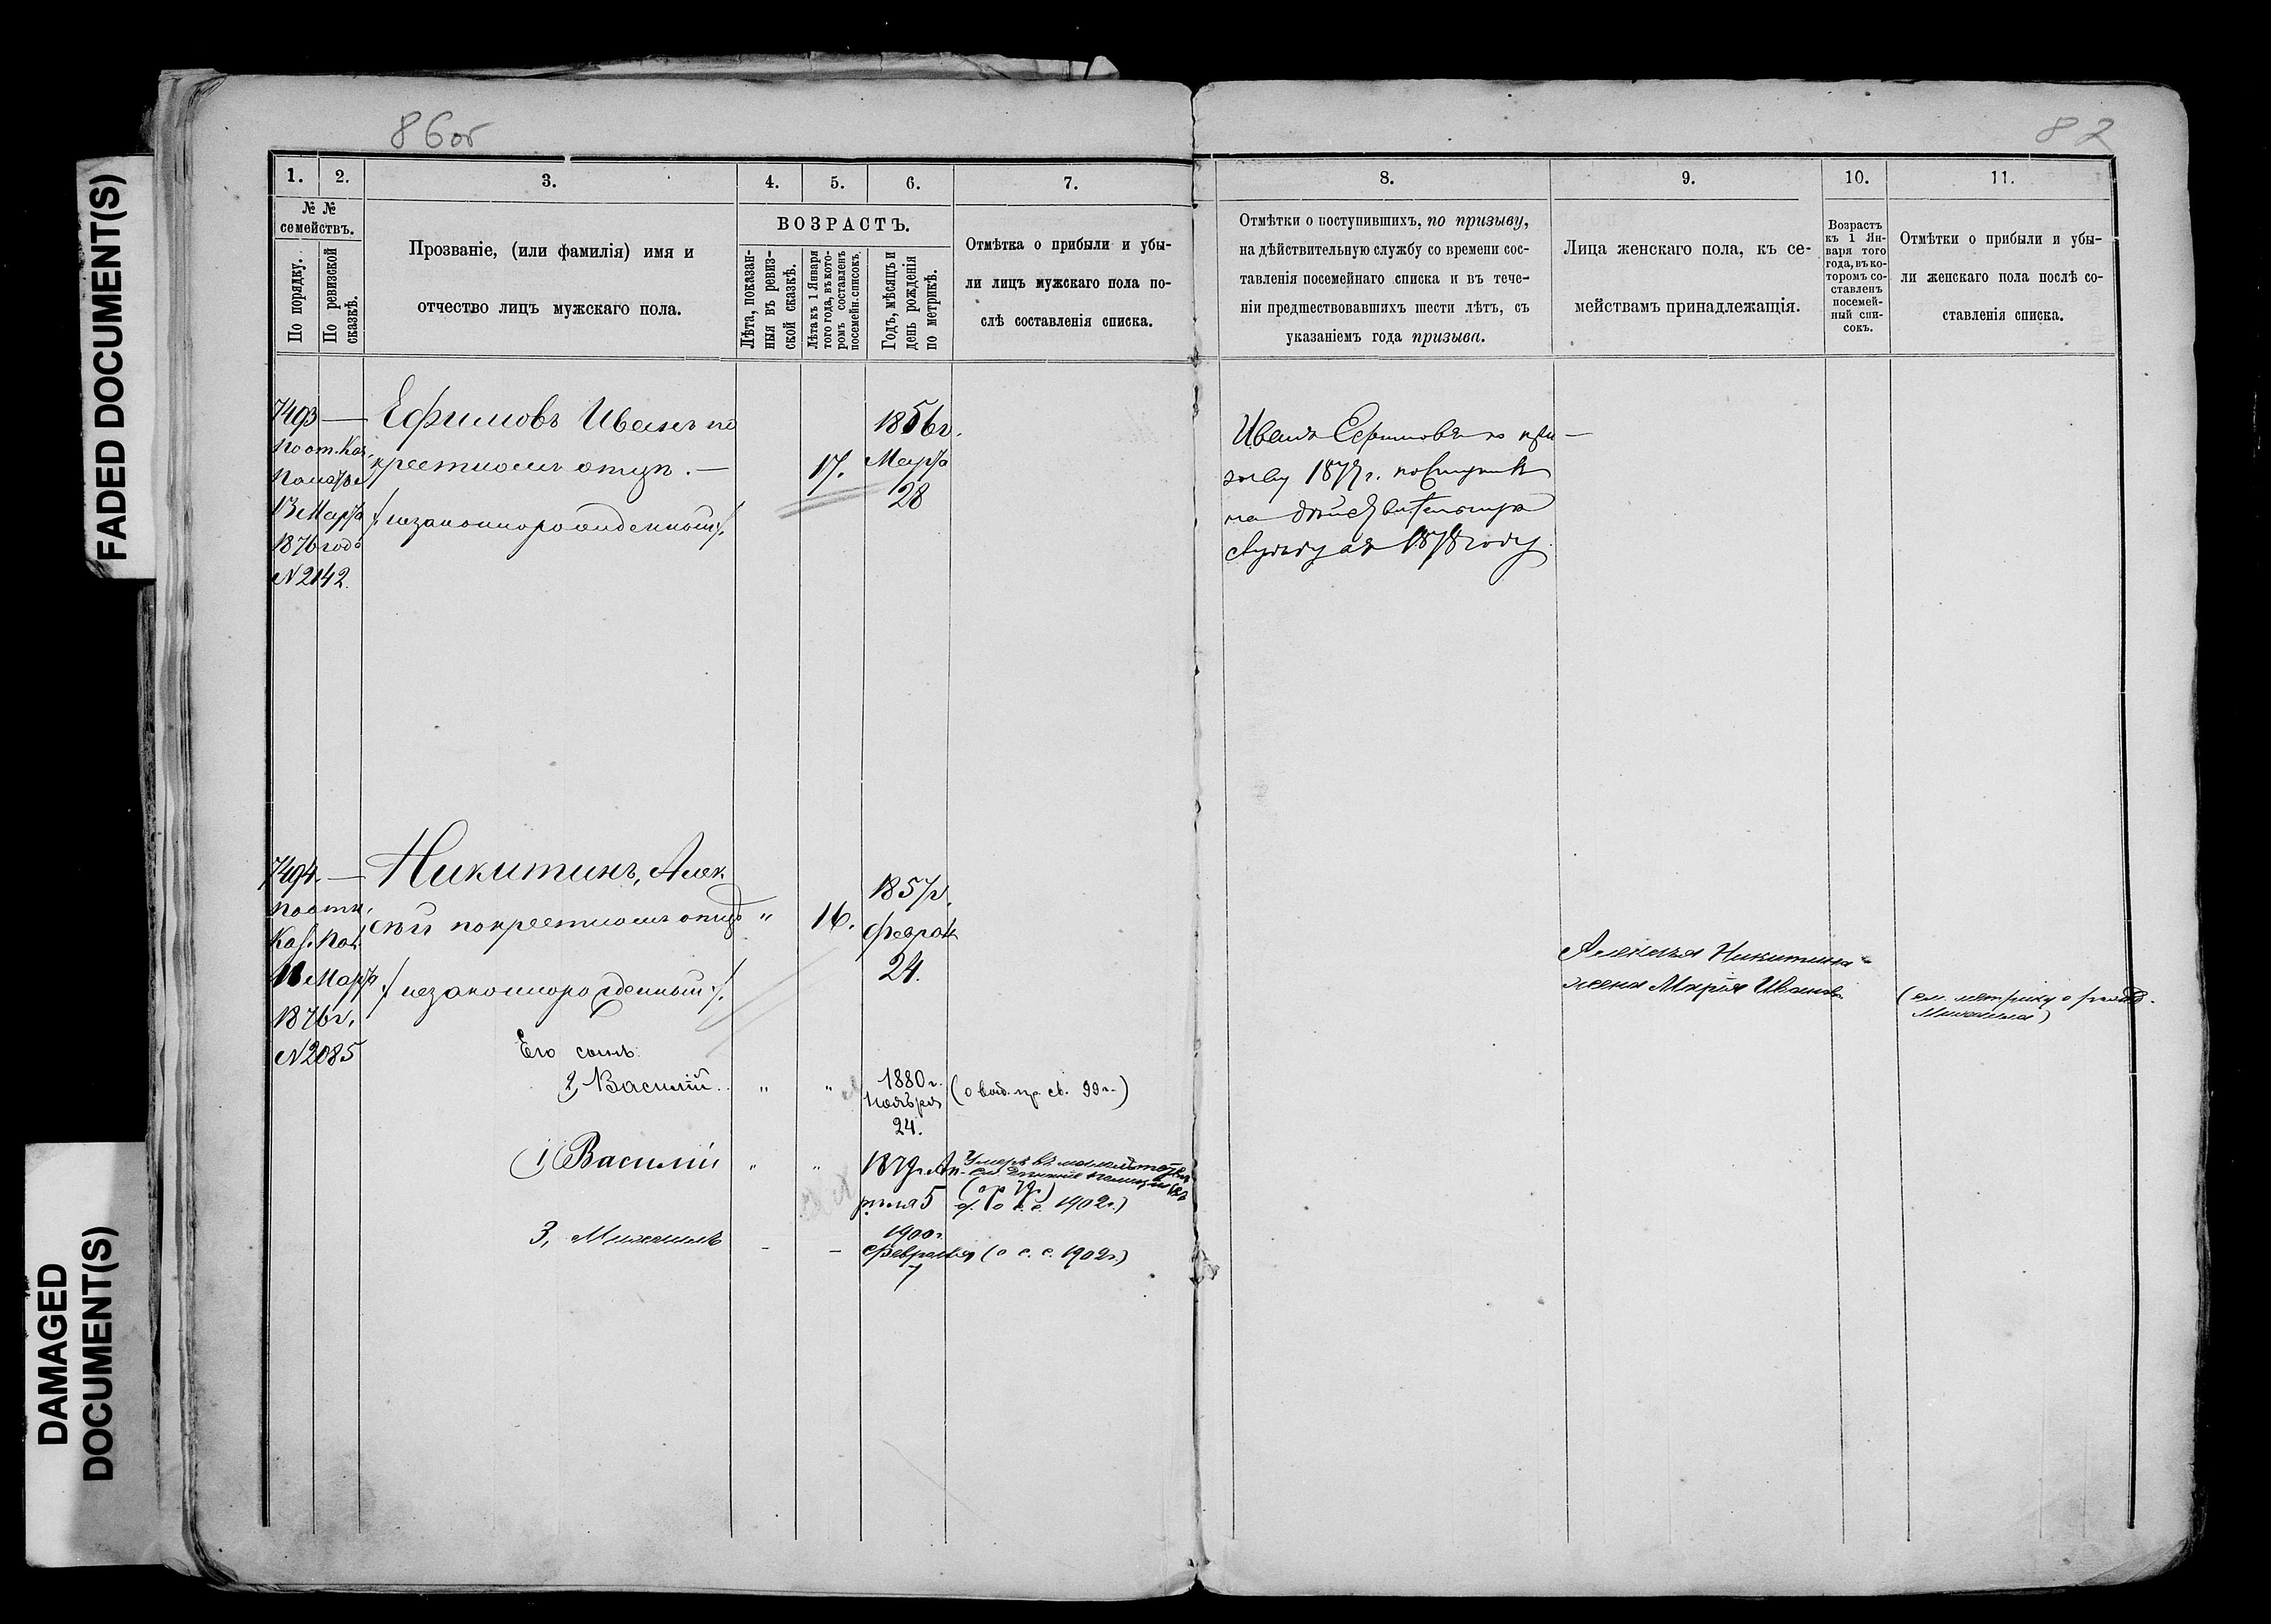 FADED DOCUMENT(S)
DAMAGED
DOCUMENT(S)
86об
82
1.
2.
3.
4.
5.
6.
7.
№ №
семействъ.
По порядку.
По ревизской
сказкѣ.
Прозваніе, (или фамилія) имя и
отчество лицъ мужскаго пола.
ВОЗРАСТЪ.
Лѣта, показан-
ныя въ ревиз-
ской сказкѣ.
Лѣта къ 1 Января
того года, въ кото-
ромъ составленъ
посемейн. списокъ.
Годъ, мѣсяцъ и
день рожденія
по метрикѣ.
Отмѣтка о прибыли и убы-
ли лицъ мужскаго пола по-
слѣ составленія списка.
8.
9.
10.
11.
Отмѣтки о поступившихъ, по призыву,
на дѣйствительную службу со времени сос-
тавленія посемейнаго списка и въ тече-
ніи предшествовавшихъ шести лѣтъ, съ
указаніемъ года призыва.
Лица женскаго пола, къ се-
мействамъ принадлежащія.
Возрастъ
къ 1 Ян-
варя того
года, въ ко-
торомъ со-
ставленъ
посемей-
ный спи-
сокъ.
Отмѣтки о прибыли и убы-
ли женскаго пола послѣ со-
ставленія списка.
7493 —
По от. Каз.
Палаты
13 Марта
1876 года
N 2142.
Ефимовъ Иванъ по
крестномъ отцѣ. —
/: незаконнорожденный :/.
17.
1856 г.
Марта
28
Иванъ Ефимовъ по при-
зыву 1877 г. поступилъ
на дѣйствительную
службу въ 1878 году.
7494. —
По отн.
Каз. Пал.
11 Марта
1876 г.
N 2085
Никитинъ, Алек
сѣй по крестномъ отцѣ
/: незаконнорожденный :/.
" 16.
1857 г.
Феврал
24.
Алексѣя Никитина
жена Марья Иванов.
(см. метрику о рожд.
Михаила)
Его сынъ:
2, Василій.. " "
1880 г.
Ноября
24.
(о вод. пр. св. 99 г.)
1) Василій " "
1879 г. Ап-
рѣля 5
Умеръ въ
1902 г.)
3, Михаилъ - -
1900 г.
Февраля
7
(о с. с. 1902 г.)